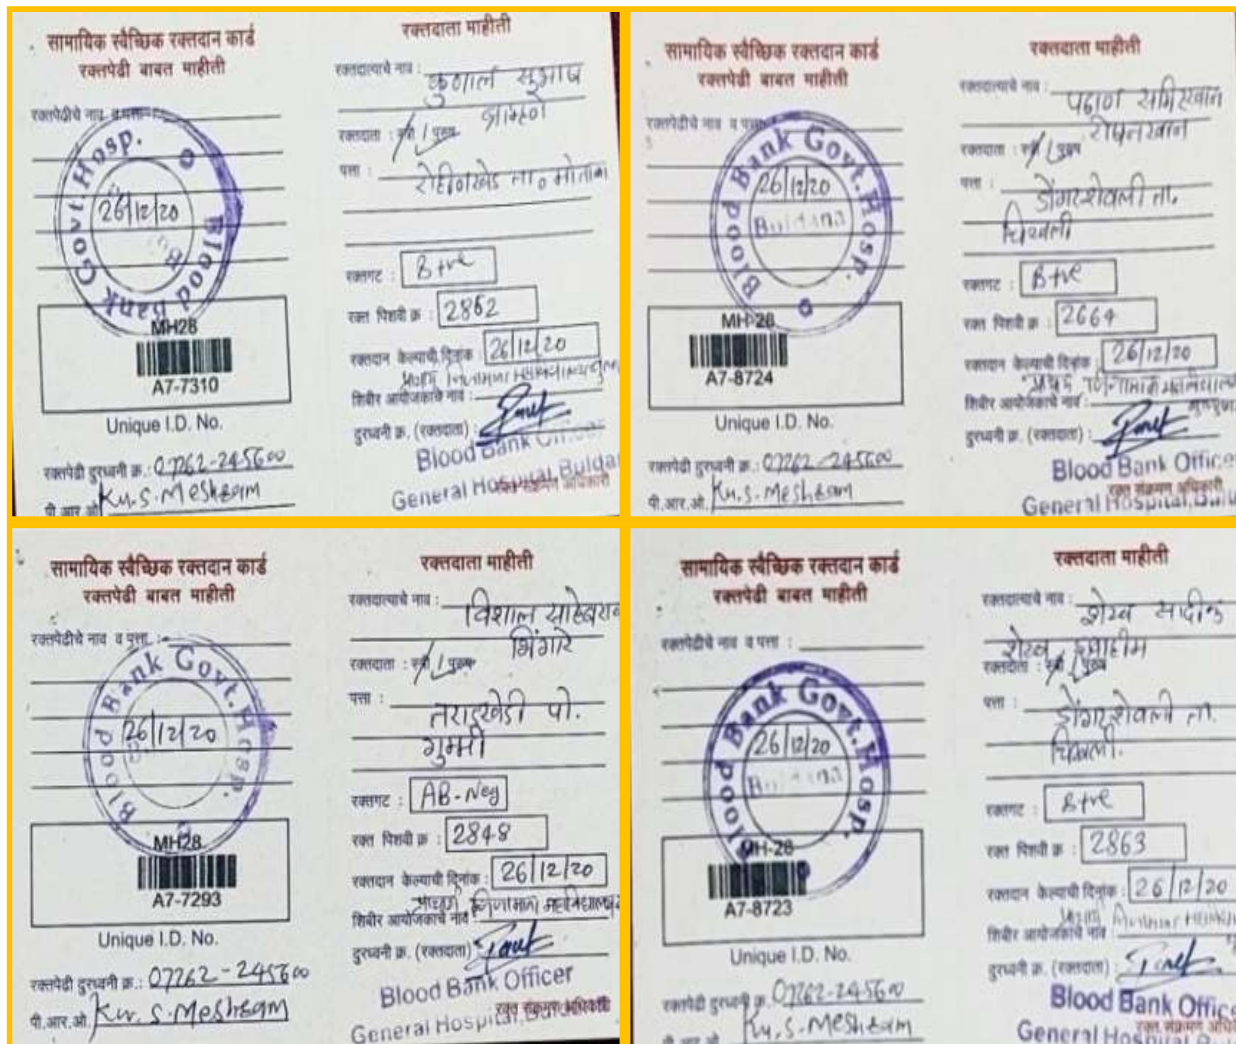 सामायिक स्वैच्छिक रक्तदान कार्ड
रक्तपेढी बाबत माहीती
रक्तपेढीचे नाव व पत्ता :
Blood Bank Govt. Hosp.
26/12/20
MH28
A7-7310
Unique I.D. No.
रक्तपेढी दुरध्वनी क्र.: 07262-245600
पी.आर.ओ. Ku. S. Meshram
रक्तदाता माहीती
रक्तदात्याचे नाव : कुणाल सुभाष
रक्तदाता : स्त्री / पुरुष
पत्ता : रोहीणखेड ता. मोताळा
रक्तगट : B+ve
रक्त पिशवी क्र : 2862
रक्तदान केल्याची दिनांक : 26/12/20
शिबीर आयोजकाचे नाव :
दुरध्वनी क्र. (रक्तदाता) :
Blood Bank Officer
General Hospital, Bulda
रक्त संक्रमण अधिकारी
सामायिक स्वैच्छिक रक्तदान कार्ड
रक्तपेढी बाबत माहीती
रक्तपेढीचे नाव व पत्ता :
Blood Bank Govt. Hosp.
26/12/20
Buldana
MH-28
A7-8724
Unique I.D. No.
रक्तपेढी दुरध्वनी क्र.: 07262-245600
पी.आर.ओ. Ku. S. Meshram
रक्तदाता माहीती
रक्तदात्याचे नाव : पठाण
रक्तदाता : स्त्री / पुरुष
पत्ता : डोंगरशेवली ता.
चिखली
रक्तगट : B+ve
रक्त पिशवी क्र : 2664
रक्तदान केल्याची दिनांक : 26/12/20
शिबीर आयोजकाचे नाव :
दुरध्वनी क्र. (रक्तदाता) :
Blood Bank Office
रक्त संक्रमण अधिकारी
General Hospital, Bul
सामायिक स्वैच्छिक रक्तदान कार्ड
रक्तपेढी बाबत माहीती
रक्तपेढीचे नाव व पत्ता :
Blood Bank Govt. Hosp.
26/12/20
MH28
A7-7293
Unique I.D. No.
रक्तपेढी दुरध्वनी क्र.: 07262-245600
पी.आर.ओ. Ku. S. Meshram
रक्तदाता माहीती
रक्तदात्याचे नाव : विशाल साहेबराव
भिंगारे
रक्तदाता : स्त्री / पुरुष
पत्ता : तराडखेडी पो.
गुम्मी
रक्तगट : AB-Neg
रक्त पिशवी क्र : 2848
रक्तदान केल्याची दिनांक : 26/12/20
शिबीर आयोजकाचे नाव
दुरध्वनी क्र. (रक्तदाता)
Blood Bank Officer
General Hospital,
सामायिक स्वैच्छिक रक्तदान कार्ड
रक्तपेढी बाबत माहीती
रक्तपेढीचे नाव व पत्ता :
Blood Bank Govt. Hosp.
26/12/20
Buldana
MH-28
A7-8723
Unique I.D. No.
रक्तपेढी दुरध्वनी क्र. 07262-245600
Ku. S. Meshram
रक्तदाता माहीती
रक्तदात्याचे नाव : शेख सादीक
शेख इब्राहीम
रक्तदाता : स्त्री / पुरुष
पत्ता : डोंगरशेवली ता.
चिखली.
रक्तगट : B+ve
रक्त पिशवी क्र : 2863
रक्तदान केल्याची दिनांक : 26/12/20
शिबीर आयोजकाचे नाव
दुरध्वनी क्र. (रक्तदाता) :
Blood Bank Office
General